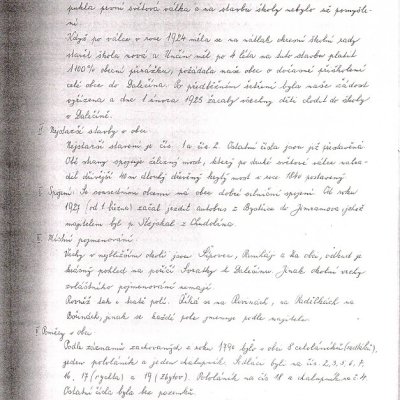 pukla první světová válka a na stavbu školy nebylo už pomyšle-
ní.
Když po válce v roce 1924 měla se na nátlak okresní školní rady
stavět škola nová a Unčín měl po 4 léta na tuto stavbu platit
1100% obecní přirážku, požádala naše obec o dočasné přiškolení
celé obce do Dalečína. Po předběžném šetření byla naše žádost
vyřízena a dne 1. února 1925 začaly všechny děti chodit do školy
v Dalečíně.
Nejstarší stavby v obci
Nejstarší stavení je čís. 1 a čís. 2. Ostatní čísla jsou již přestavěna
Obě strany spojuje železný most, který po druhé světové válce nahra-
dil dřívější 40 m dlouhý dřevěný krytý most z roku 1840 postavený
Spojení: Se sousedními obcemi má obec dobré silniční spojení. Od roku
1927 (od 1. března) začal jezdit autobus z Bystřice do Jimramova, jehož
majitelem byl p. Stejskal z Chudobína.
Místní pojmenování
Vrchy v nejbližším okolí jsou Lipovec, a Za obcí, odkud je
krásný pohled na povodí Svratky k Dalečínu. Jinak okolní vrchy
zvláštního pojmenování nemají.
Rovněž tak i tratě polí. Říká se na Rovinách, na Sedličkách na
jinak se každé pole jmenuje podle majitele.
Poměry v obci
Podle záznamů zachovaných z roku 1790 bylo v obci 8 celoláníků (sedláků),
jeden pololáník a jeden chalupník. Sedláci byli na čís. 2, 3, 5, 6, 7,
16, 17 (rychta) a 19 (zbytov). Pololáník na čís 18 a chalupník na č. 4.
Ostatní čísla byla bez pozemků.